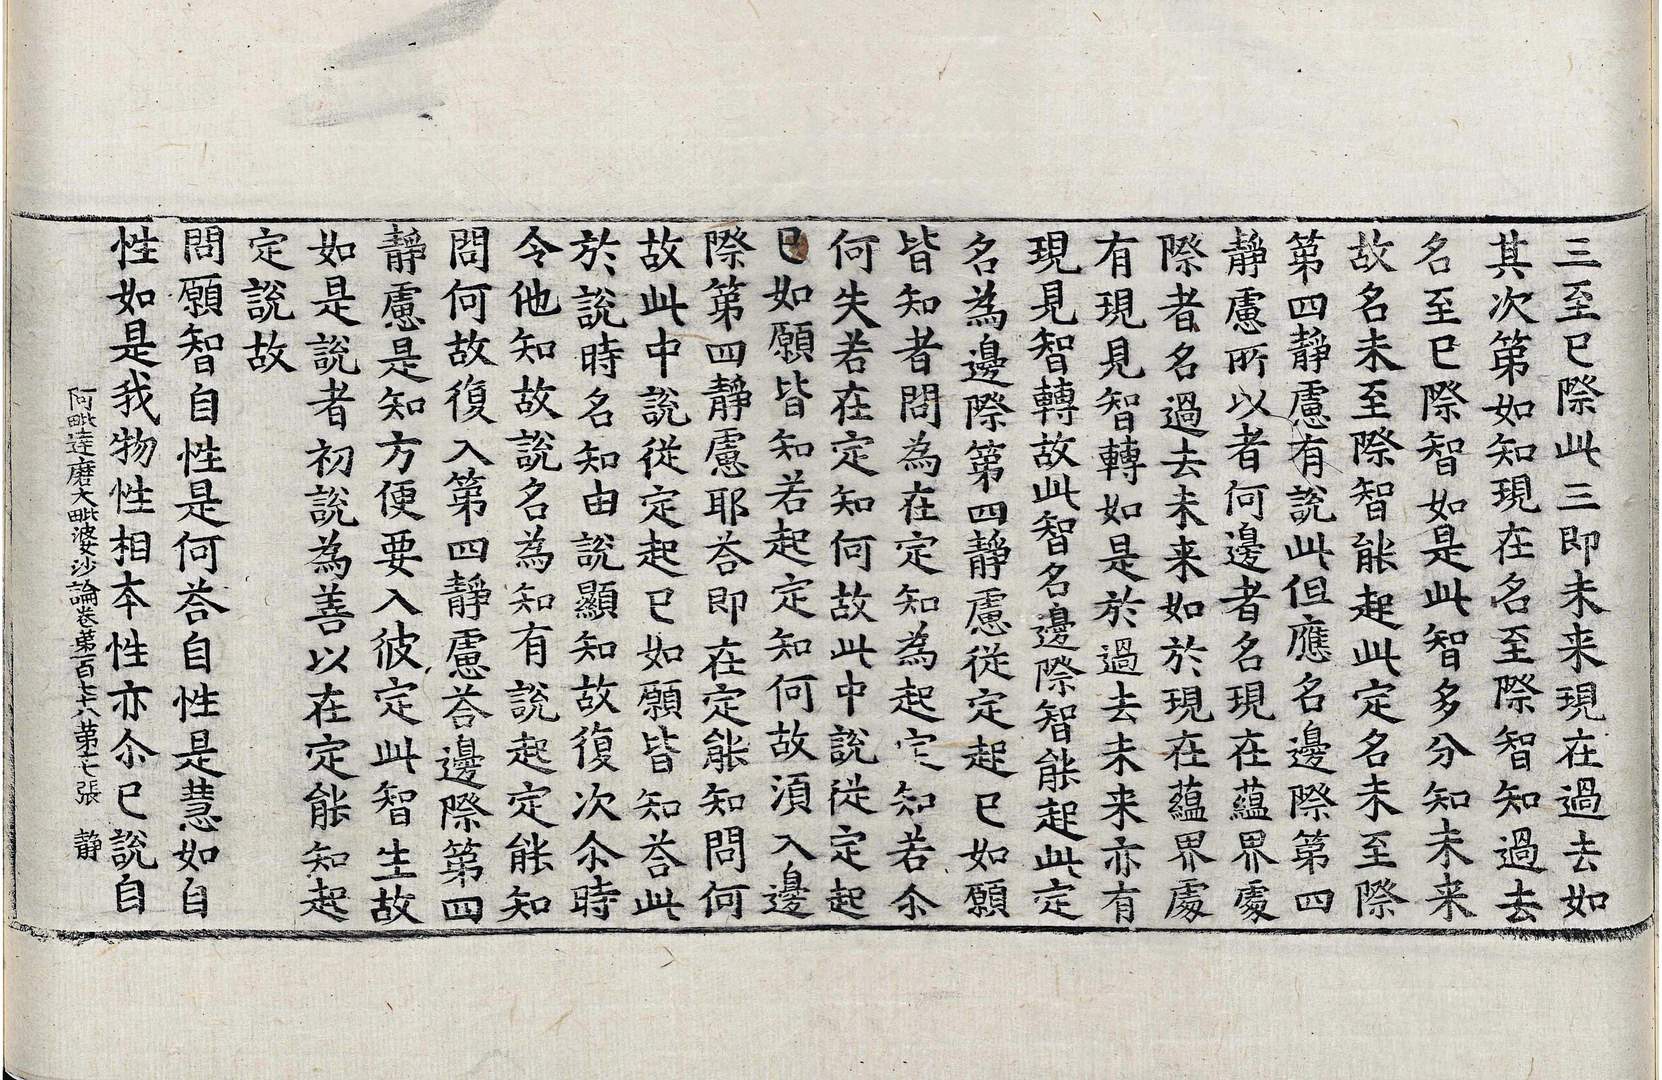 三至已際此三即未来現在過去如
其次第如知現在名至際智知過去
名至已際智如是此智多分知未来
故名未至際智能起此定名未至際
第四靜慮有說此但應名邊際第四
靜慮所以者何邊者名現在蘊界處
際者名過去未来如於現在蘊界處
有現見智轉如是於過去未来亦有
現見智轉故此智名邊際智能起此定
名為邊際第四靜慮従定起已如願
皆知者問為在定知為起定知若尒
何失若在定知何故此中說従定起
已如願皆知若起定知何故湏入邊
際第四靜慮耶荅即在定能知問何
故此中說従定起已如願皆知荅此
於說時名知由說顯知故復次尒時
令他知故說名為知有說起定能知
問何故復入第四靜慮荅邊際第四
靜慮是知方便要入彼定此智生故
如是說者初說為善以在定能知起
定說故
問願智自性是何荅自性是慧如自
性如是我物性相本性亦尒已說自
阿毗達磨大毗婆沙論卷第一百七十八第七張 靜